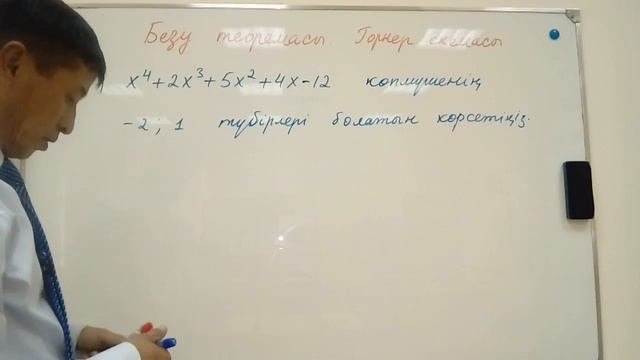 Безу теоремасы. Горнер схемасы
x⁴+2x³+5x²+4x-12 көпмүшенің
-2, 1 түбірлері болатын көрсетіңіз.